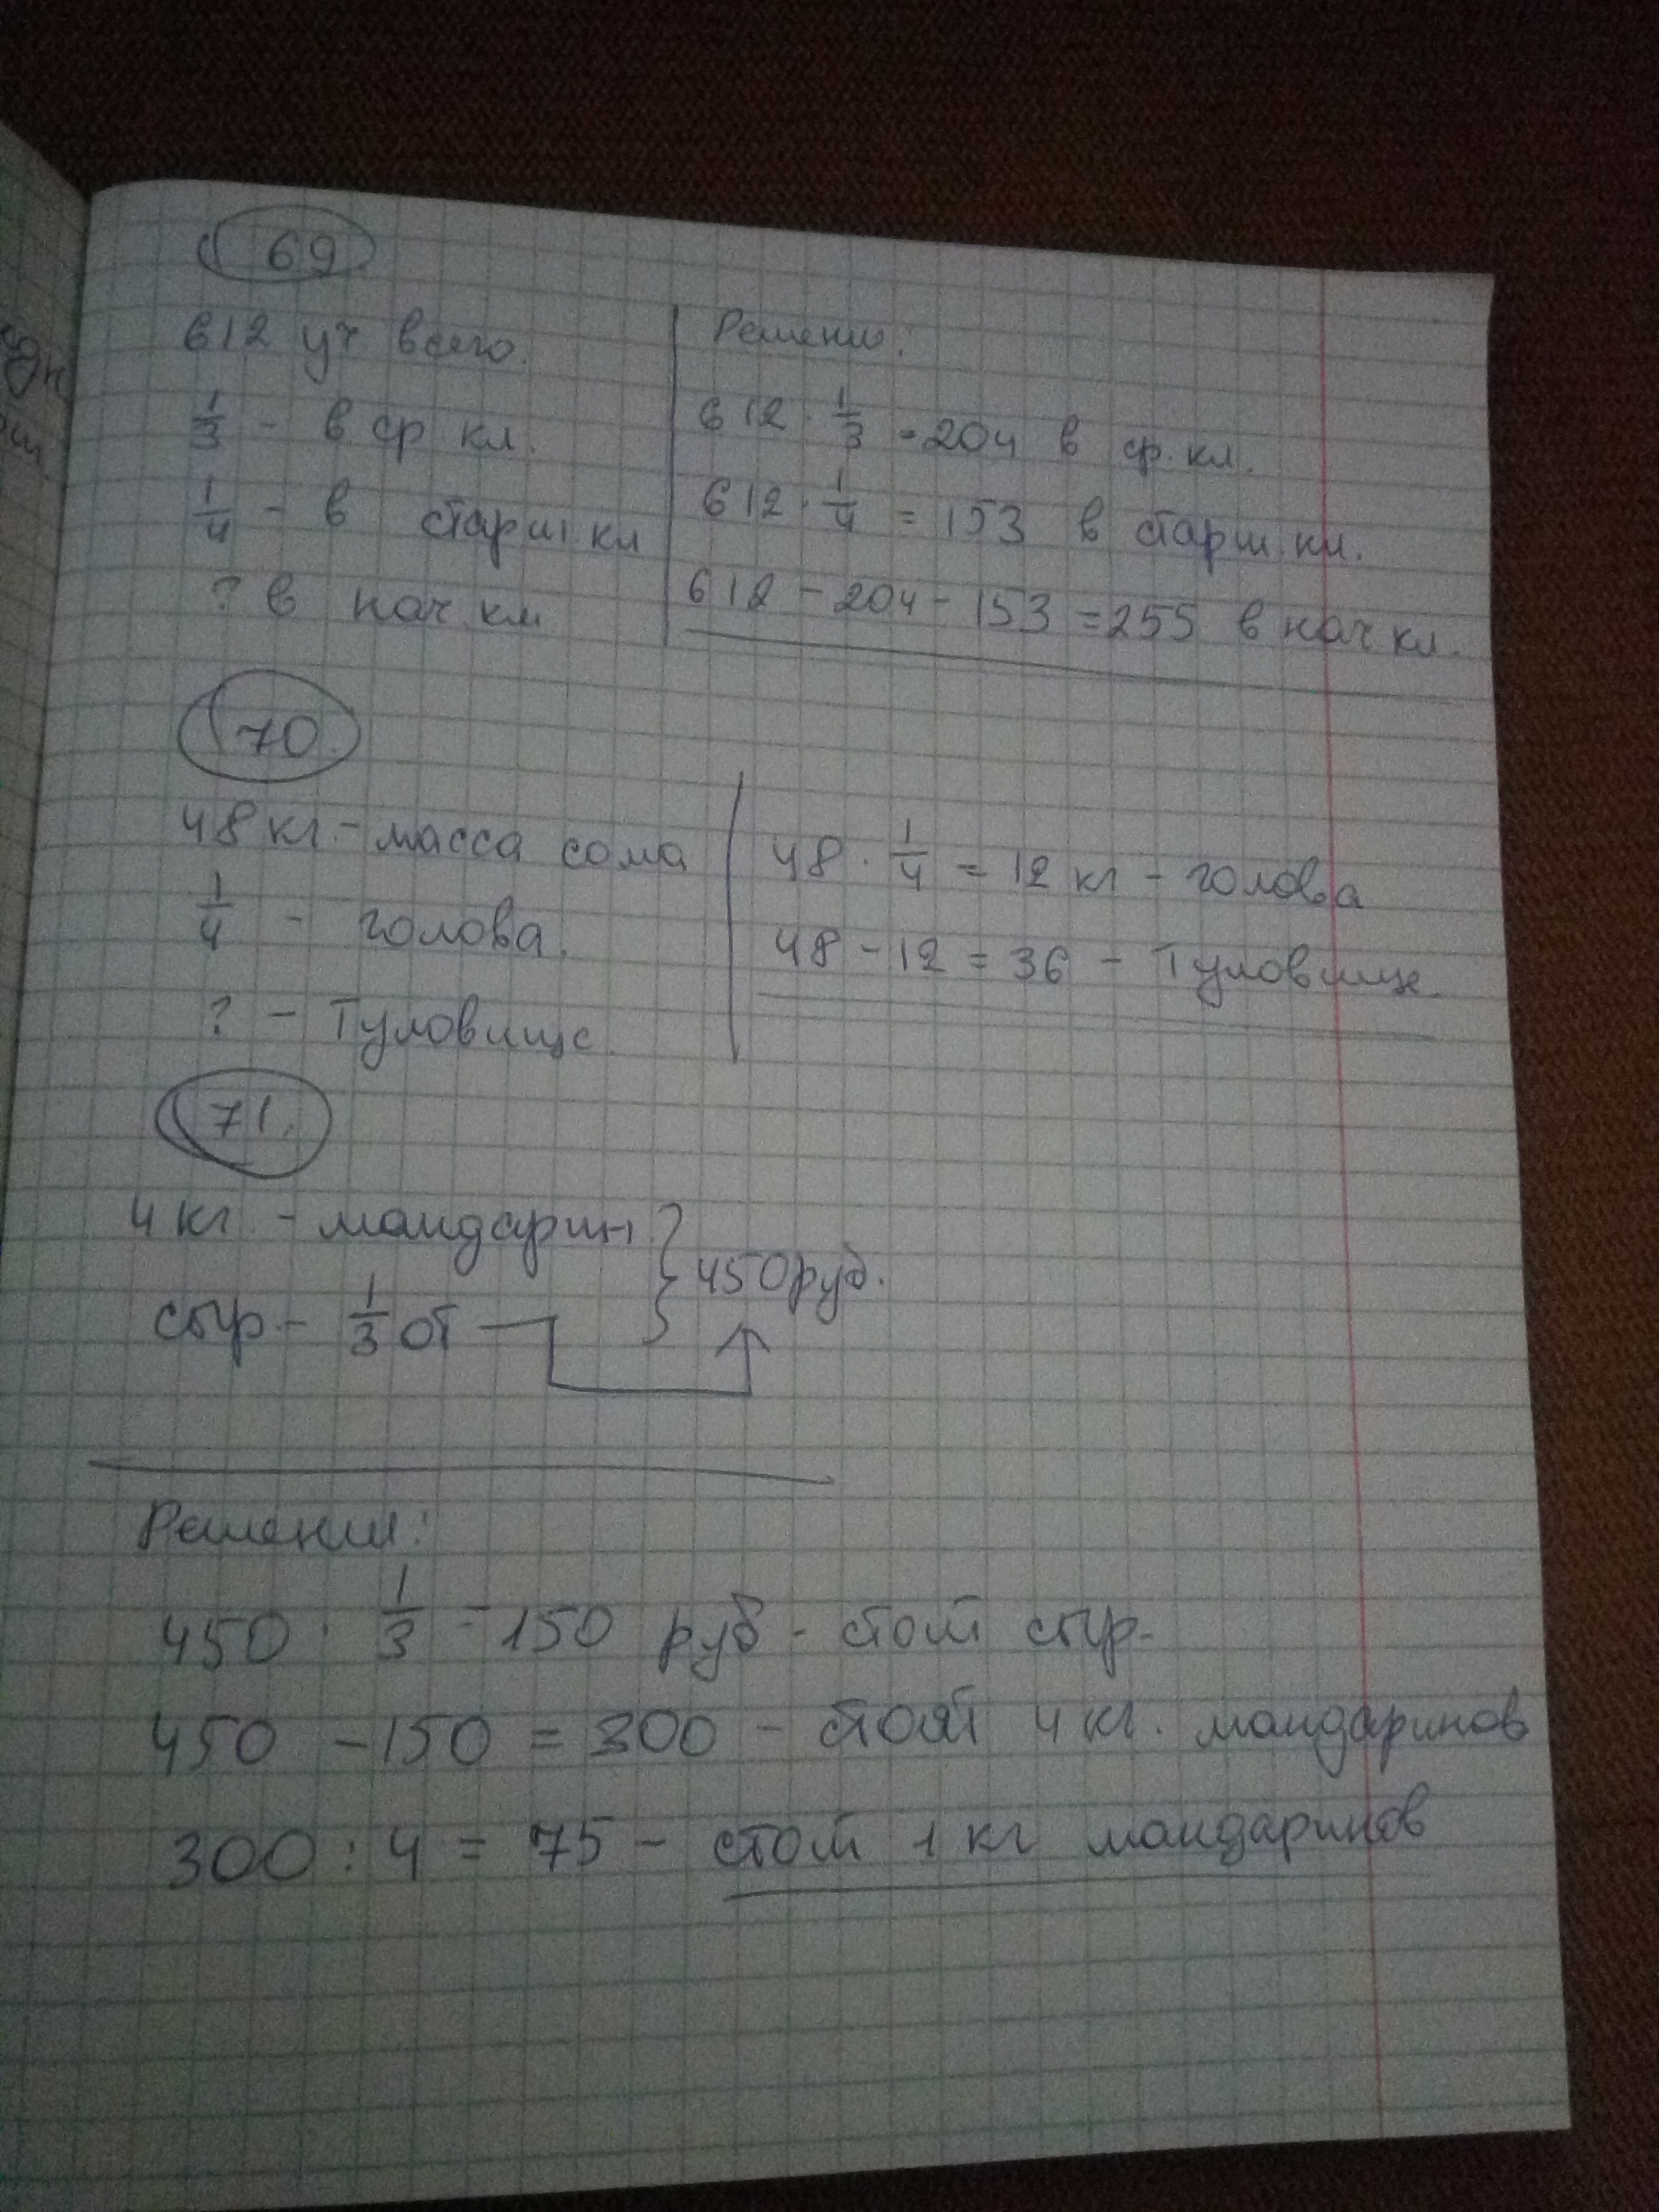 69
612 уч всего. Решение:
1/3 - в ср кл. 612 · 1/3 = 204 в ср. кл.
1/4 - в старш. кл 612 · 1/4 = 153 в старш. кл.
? в нач. кл 612 - 204 - 153 = 255 в нач кл.
70.
48 кг. - масса сома 48 · 1/4 = 12 кг - голова
1/4 - голова. 48 - 12 = 36 - Туловище.
? - Туловище.
71.
4 кг. - мандарин } 450 руб.
сыр - 1/3 от
Решение:
450 · 1/3 = 150 руб - стоит сыр.
450 - 150 = 300 - стоят 4 кг. мандаринов
300 : 4 = 75 - стоит 1 кг мандаринов